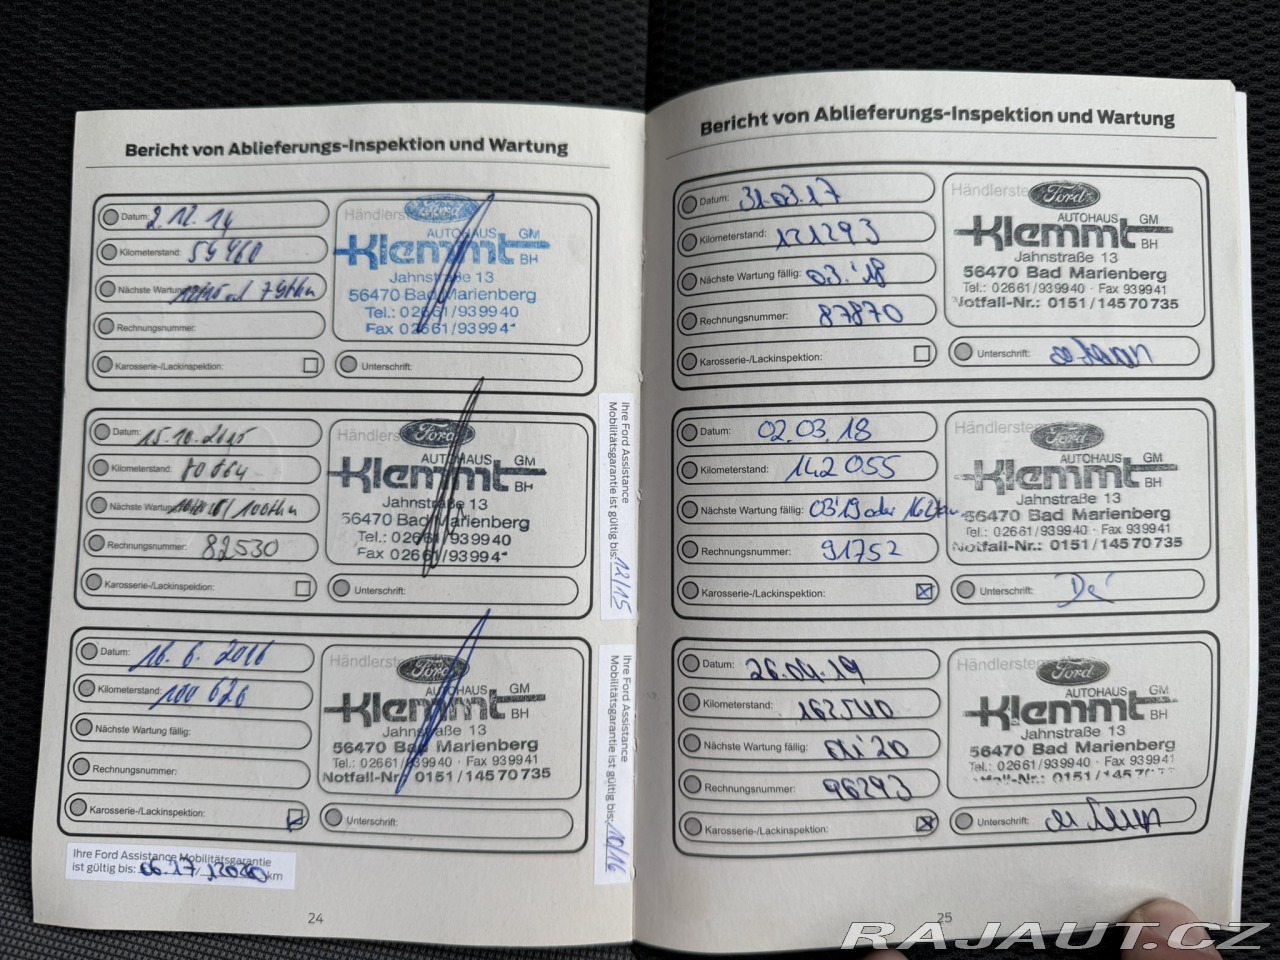 Bericht von Ablieferungs-Inspektion und Wartung
Datum: 2.12.14
Kilometerstand: 59460
Nächste Wartung
Rechnungsnummer:
Karosserie-/Lackinspektion:
Händlerste
Ford
AUTOHAUS
Klemmt GM BH
Jahnstraße 13
56470 Bad Marienberg
Tel.: 02661/939940
Fax 02661/93994
Unterschrift:
Datum: 15.10.2015
Kilometerstand: 80664
Nächste Wartung / 100tkm
Rechnungsnummer: 82530
Karosserie-/Lackinspektion:
Händlerste
Ford
AUTOHAUS
Klemmt GM BH
Jahnstraße 13
56470 Bad Marienberg
Tel.: 02661/939940
Fax 02661/93994
Unterschrift:
Ihre Ford Assistance
Mobilitätsgarantie ist gültig bis: 12/15
Datum: 16.6.2016
Kilometerstand: 100 626
Nächste Wartung fällig:
Rechnungsnummer:
Karosserie-/Lackinspektion:
Händlerste
Ford
AUTOHAUS
Klemmt GM BH
Jahnstraße 13
56470 Bad Marienberg
Tel.: 02661/939940 · Fax 939941
Notfall-Nr.: 0151/14570735
Unterschrift:
Ihre Ford Assistance
Mobilitätsgarantie ist gültig bis: 10/16
Ihre Ford Assistance Mobilitätsgarantie
ist gültig bis: 06.17/ km
24
Bericht von Ablieferungs-Inspektion und Wartung
Datum: 31.03.17
Kilometerstand: 121293
Nächste Wartung fällig: 03.'18
Rechnungsnummer: 87870
Karosserie-/Lackinspektion:
Händlerste
Ford
AUTOHAUS
Klemmt GM BH
Jahnstraße 13
56470 Bad Marienberg
Tel.: 02661/939940 · Fax 939941
Notfall-Nr.: 0151/14570735
Unterschrift:
Datum: 02.03.18
Kilometerstand: 142055
Nächste Wartung fällig: 03'19 oder 162tkm
Rechnungsnummer: 91752
Karosserie-/Lackinspektion:
Händlerste
Ford
AUTOHAUS
Klemmt GM BH
Jahnstraße 13
56470 Bad Marienberg
Tel.: 02661/939940 · Fax 939941
Notfall-Nr.: 0151/14570735
Unterschrift:
Datum: 26.04.19
Kilometerstand: 162540
Nächste Wartung fällig: 04'20
Rechnungsnummer: 96293
Karosserie-/Lackinspektion:
Händlerste
Ford
AUTOHAUS
Klemmt GM BH
Jahnstraße 13
56470 Bad Marienberg
Tel.: 02661/939940 · Fax 939941
Unterschrift:
25
RAJAUT.CZ